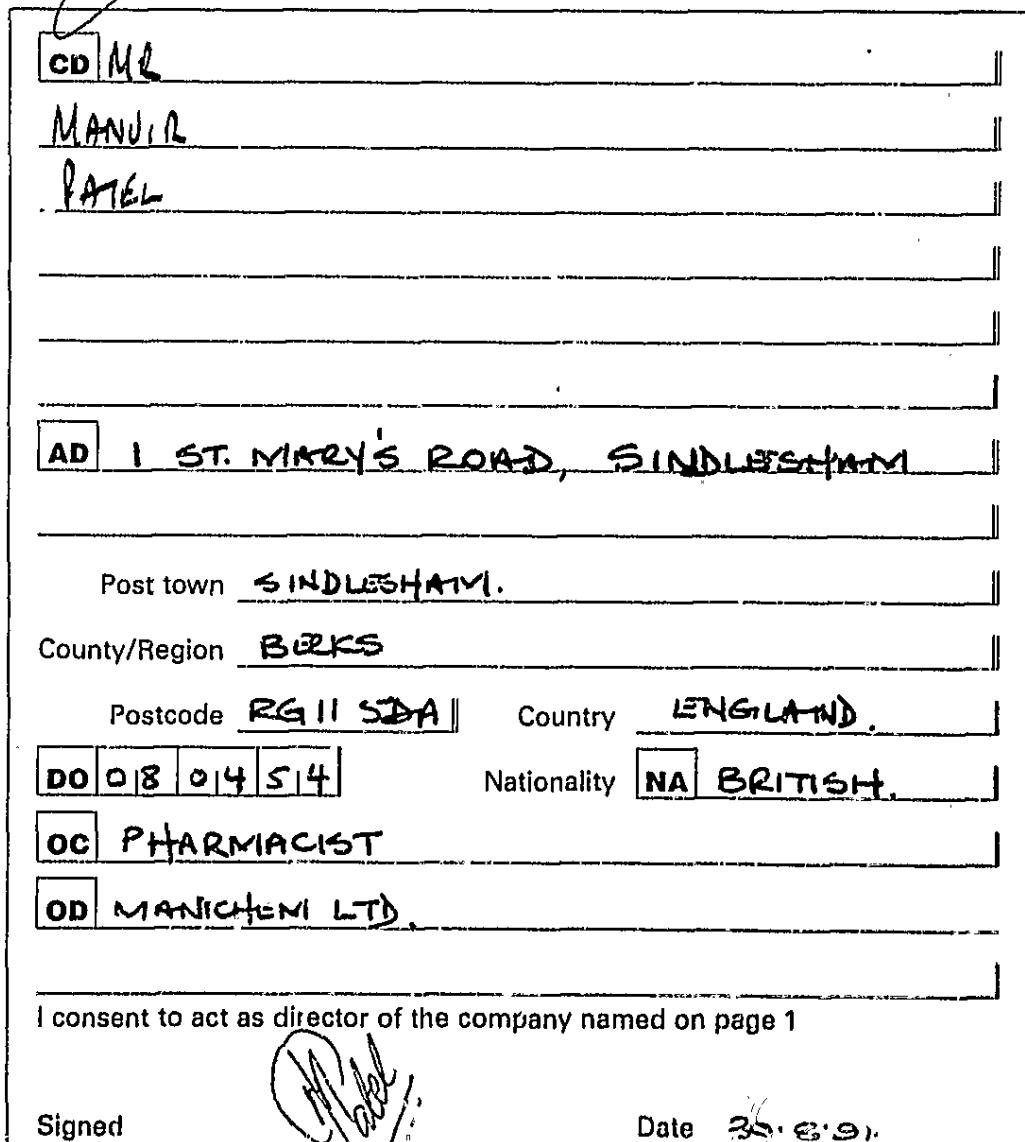 CD MR
MANVIR
PATEL
AD 1 ST. MARY'S ROAD, SINDLESHAM
Post town SINDLESHAM.
County/Region BERKS
Postcode RG11 5DA Country ENGLAND.
DO 08 04 54 Nationality NA BRITISH.
OC PHARMACIST
OD MANICHEM LTD.
I consent to act as director of the company named on page 1
Signed Patel Date